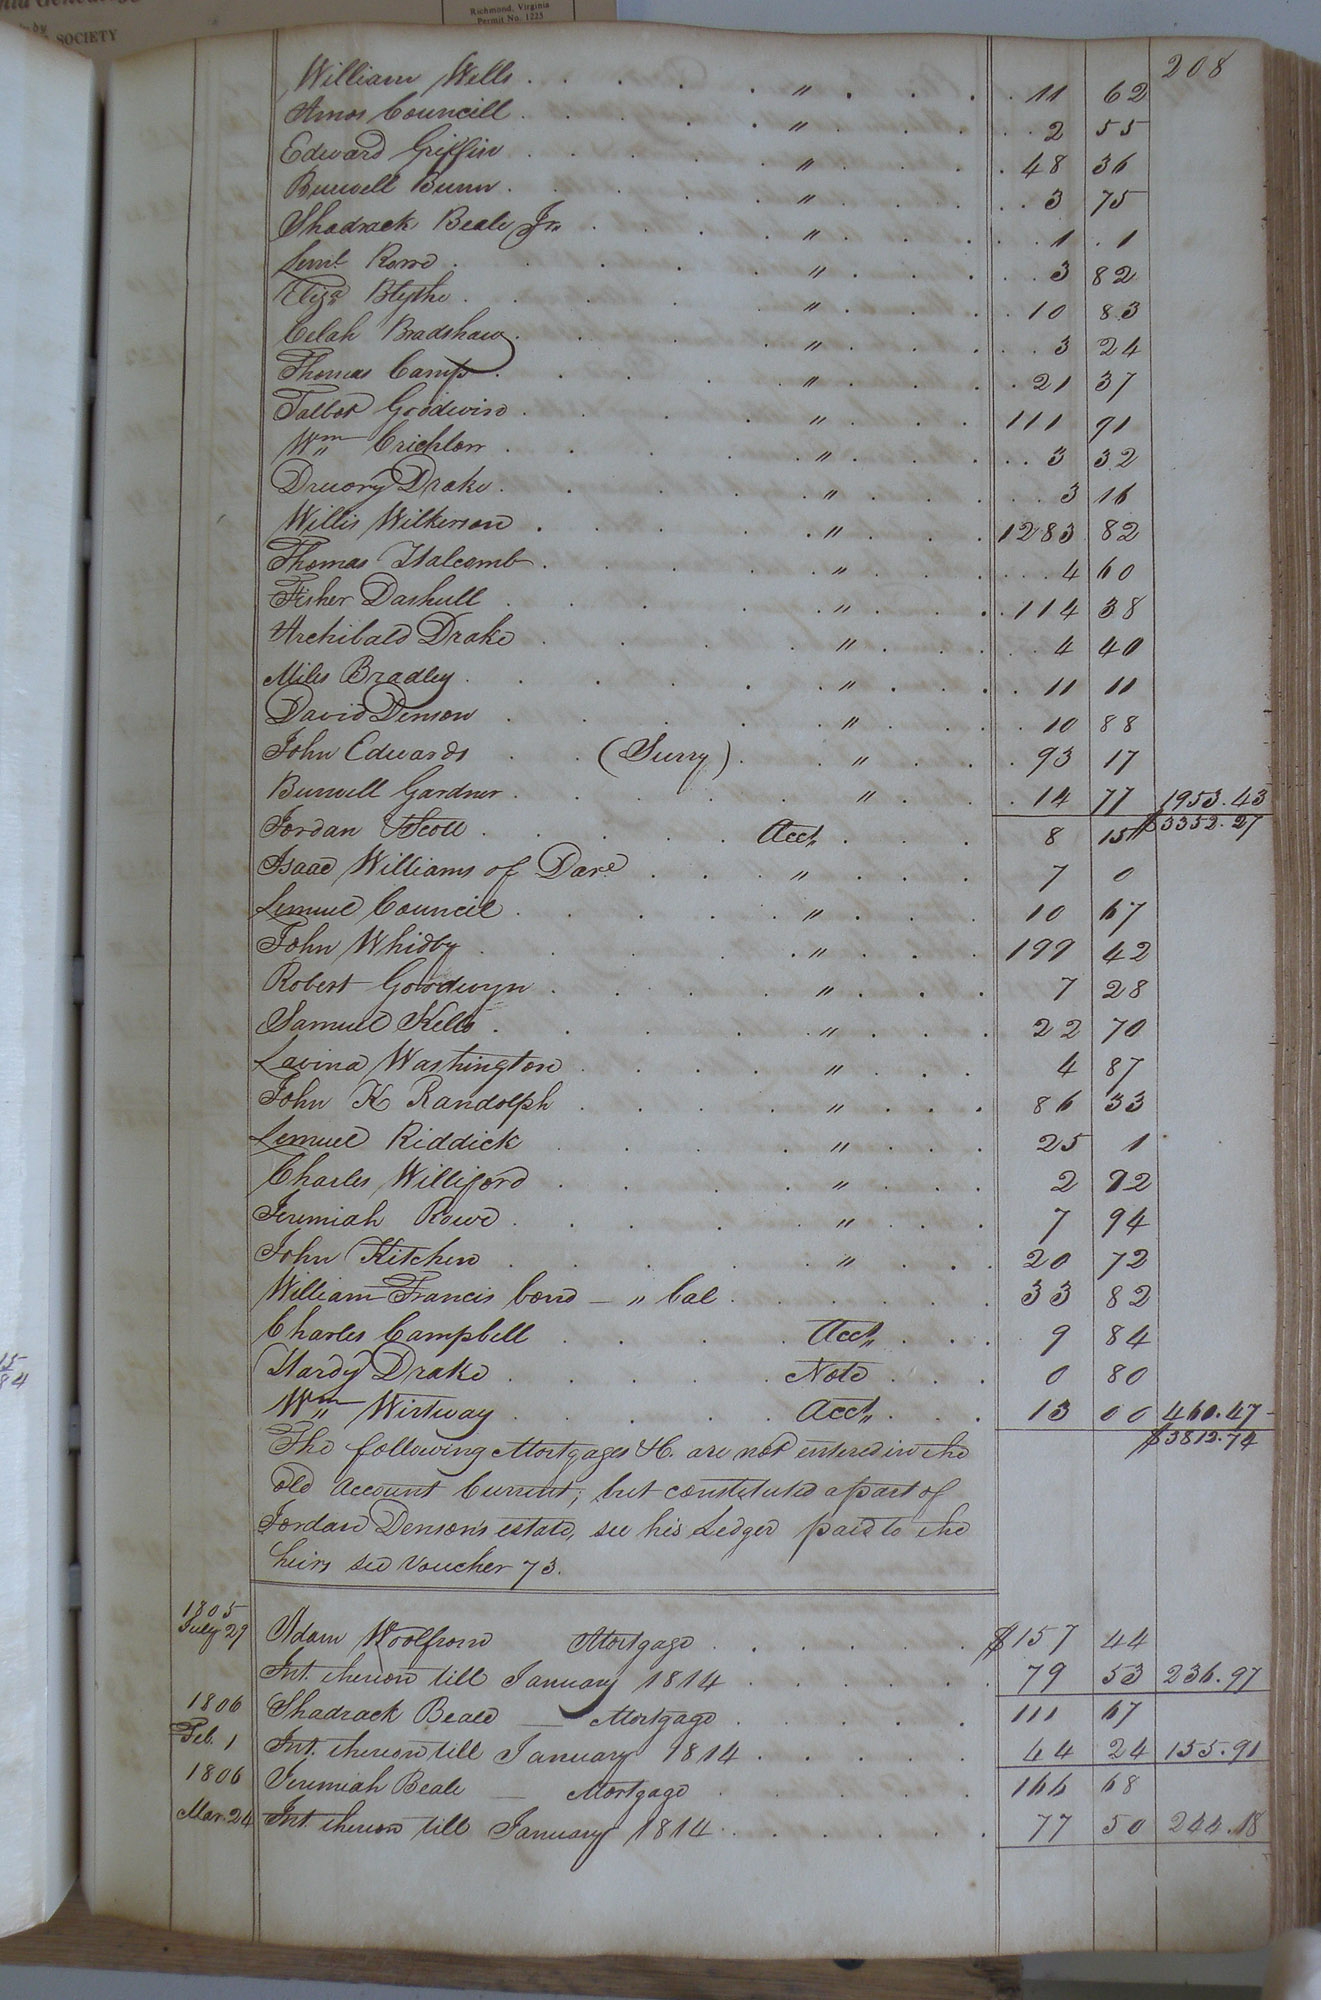 Richmond, Virginia
Permit No. 1225
SOCIETY
208
William Wells . . . . " . . . 11 62
Amos Councill . . . . " . . . 2 55
Edward Griffin . . . . " . . . 48 36
Burwell Bunn . . . . " . . . 3 75
Shadrack Beale Jr. . . . . " . . . 1 . 1
Leml. Rowe . . . . " . . . 3 82
Eliza Blythe . . . . " . . . 10 83
Celah Bradshaw . . . . " . . . 3 24
Thomas Camp . . . . " . . . 21 37
Talbot Goodwin . . . . " . . . 111 91
Wm Crichlow . . . . " . . . 3 32
Druory Drake . . . . " . . . 3 16
Willis Wilkerson . . . . " . . . 1283 82
Thomas Halcomb . . . . " . . . 4 60
Fisher Dashull . . . . " . . . 114 38
Archibald Drake . . . . " . . . 4 40
Miles Bradley . . . . " . . . 11 11
David Denson . . . . " . . . 10 88
John Edwards . . (Surry) . . " . . . 93 17
Burwell Gardner . . . . " . . . 14 77 1953.43
Jordan Scott . . . . Acct, . . . 8 15 $3352.27
Isaac Williams of Dare . . . " . . . 7 0
Lemuel Council . . . . " . . . 10 67
John Whidby . . . . " . . . 199 42
Robert Goodwyn . . . . " . . . 7 28
Samuel Kello . . . . " . . . 22 70
Lavina Washington . . . . " . . . 4 87
John K Randolph . . . . " . . . 86 33
Lemuel Riddick . . . . " . . . 25 1
Charles Williford . . . . " . . . 2 92
Jeremiah Rowe . . . . " . . . 7 94
John Kitchen . . . . " . . . 20 72
William Francis bond — " bal . . . . . . 33 82
Charles Campbell . . . . Acct, . . . 9 84
Hardy Drake . . . . Note . . . 0 80
Wm Wistway . . . . Acct, . . . 13 00 460.47
$3812.74
The following Mortgages &C. are not entered in the
old Account Current; but constituted a part of
Jordan Denson's estate, see his Ledger paid to the
heirs see Voucher 73.
1805
July 29 Adam Woolfrom Mortgage . . . . . . $157 44
Int. thereon till January 1814 . . . . . . 79 53 236.97
1806 Shadrack Beale — Mortgage . . . . . 111 67
Feb. 1 Int. thereon till January 1814 . . . . . 44 24 155.91
1806 Jeremiah Beale — Mortgage . . . . . 166 68
Mar. 24 Int. thereon till January 1814 . . . . . . 77 50 244.18